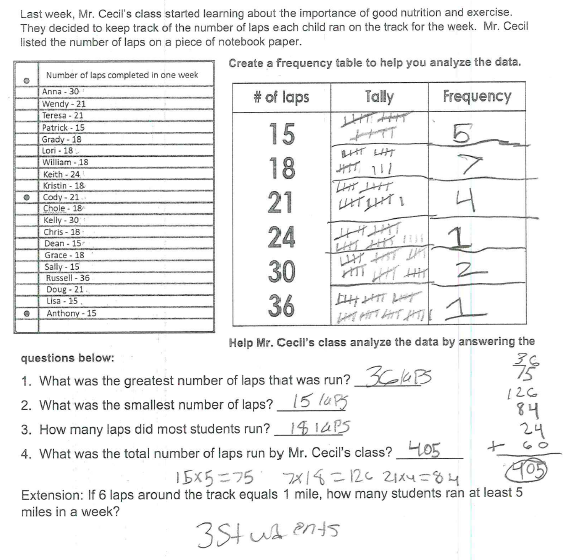 Last week, Mr. Cecil's class started learning about the importance of good nutrition and exercise.
They decided to keep track of the number of laps each child ran on the track for the week. Mr. Cecil
listed the number of laps on a piece of notebook paper.
Create a frequency table to help you analyze the data.
Number of laps completed in one week
Anna - 30
Wendy - 21
Teresa - 21
Patrick - 15
Grady - 18
Lori - 18
William - 18
Keith - 24
Kristin - 18
Cody - 21
Chole - 18
Kelly - 30
Chris - 18
Dean - 15
Grace - 18
Sally - 15
Russell - 36
Doug - 21
Lisa - 15
Anthony - 15
# of laps Tally Frequency
15 5
18 7
21 4
24 1
30 2
36 1
Help Mr. Cecil's class analyze the data by answering the
questions below:
1. What was the greatest number of laps that was run? 36 laps
2. What was the smallest number of laps? 15 laps
3. How many laps did most students run? 18 laps
4. What was the total number of laps run by Mr. Cecil's class? 405
36
75
126
84
24
+ 60
405
15x5=75 7x18=126 21x4=84
Extension: If 6 laps around the track equals 1 mile, how many students ran at least 5
miles in a week?
3 Students